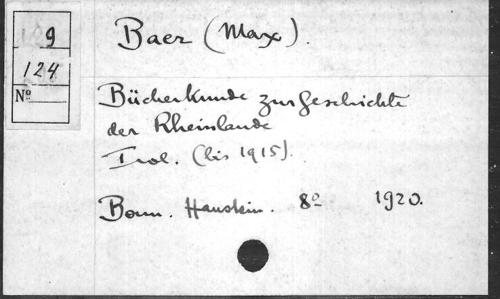 9
124
Nº
Baer (Max).
Bücherkunde zur Geschichte
der Rheinlande
I vol. (bis 1915).
Bonn. Hanstein. 8º 1920.